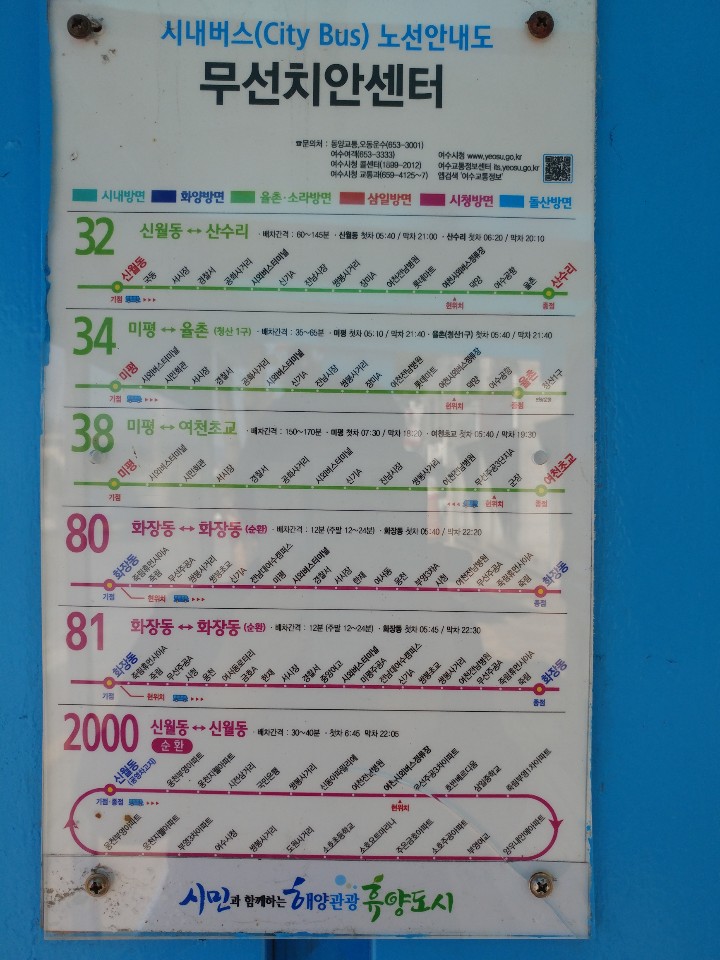 시내버스(City Bus) 노선안내도
무선치안센터
☎문의처 : 동양교통,오동운수(653-3001)
여수여객(653-3333)
여수시청 콜센터(1899-2012)
여수시청 교통과(659-4125~7)
여수시청 www.yeosu.go.kr
여수교통정보센터 its.yeosu.go.kr
앱검색 '여수교통정보'
시내방면 화양방면 율촌·소라방면 삼일방면 시청방면 돌산방면
32 신월동 ↔ 산수리 · 배차간격 : 60~145분 · 신월동 첫차 05:40 / 막차 21:00 · 산수리 첫차 06:20 / 막차 20:10
신월동 국동 서시장 경찰서 공화사거리 시외버스터미널 신기A 전남시장 쌍봉사거리 장미A 여천전남병원 롯데마트 여천시외버스정류장 덕양 여수공항 율촌 산수리
기점 현위치 종점
34 미평 ↔ 율촌 (청산 1구) · 배차간격 : 35~65분 · 미평 첫차 05:10 / 막차 21:40 · 율촌(청산1구) 첫차 05:40 / 막차 21:40
미평 시외버스터미널 시민회관 서시장 경찰서 공화사거리 시외버스터미널 신기A 전남시장 쌍봉사거리 장미A 여천전남병원 롯데마트 여천시외버스정류장 덕양 여수공항 율촌 청산1구
기점 현위치 종점
38 미평 ↔ 여천초교 · 배차간격 : 150~170분 · 미평 첫차 07:30 / 막차 18:20 · 여천초교 첫차 05:40 / 막차 19:30
미평 시외버스터미널 시민회관 서시장 경찰서 공화사거리 시외버스터미널 신기A 전남시장 쌍봉사거리 여천전남병원 무선주공3단지A 군장 여천초교
기점 현위치 종점
80 화장동 ↔ 화장동 (순환) · 배차간격 : 12분 (주말 12~24분) · 화장동 첫차 05:40 / 막차 22:20
화장동 죽림휴먼시아A 죽림 무선주공A 쌍봉사거리 쌍봉초교 신기A 전남대여수캠퍼스 미평 시외버스터미널 경찰서 서시장 한재 여서동 웅천 부영3차A 시청 여천전남병원 무선주공A 죽림휴먼시아A 죽림 화장동
기점 현위치 종점
81 화장동 ↔ 화장동 (순환) · 배차간격 : 12분 (주말 12~24분) · 화장동 첫차 05:45 / 막차 22:30
화장동 죽림휴먼시아A 죽림 무선주공A 시청 웅천 여서동로타리 금호A 한재 서시장 경찰서 중앙여고 시외버스터미널 미평주공A 전남대여수캠퍼스 신기A 쌍봉초교 쌍봉사거리 여천전남병원 무선주공A 죽림휴먼시아A 죽림 화장동
기점 현위치 종점
2000 신월동 ↔ 신월동 · 배차간격 : 30~40분 · 첫차 6:45 막차 22:05
순환
신월동 웅천부영아파트 웅천지웰아파트 시전삼거리 국민은행 쌍봉사거리 신동아파밀리에 여천전남병원 여천시외버스정류장 무선주공3차아파트 호반베르디움 삼일중학교 죽림부영1차아파트
기점·종점 현위치
웅천부영아파트 웅천지웰아파트 부영3차아파트 여수시청 쌍봉사거리 도원사거리 소호초등학교 소호요트마리나 주은금호아파트 소호주공아파트 부영여고
시민과 함께하는 해양관광 휴양도시